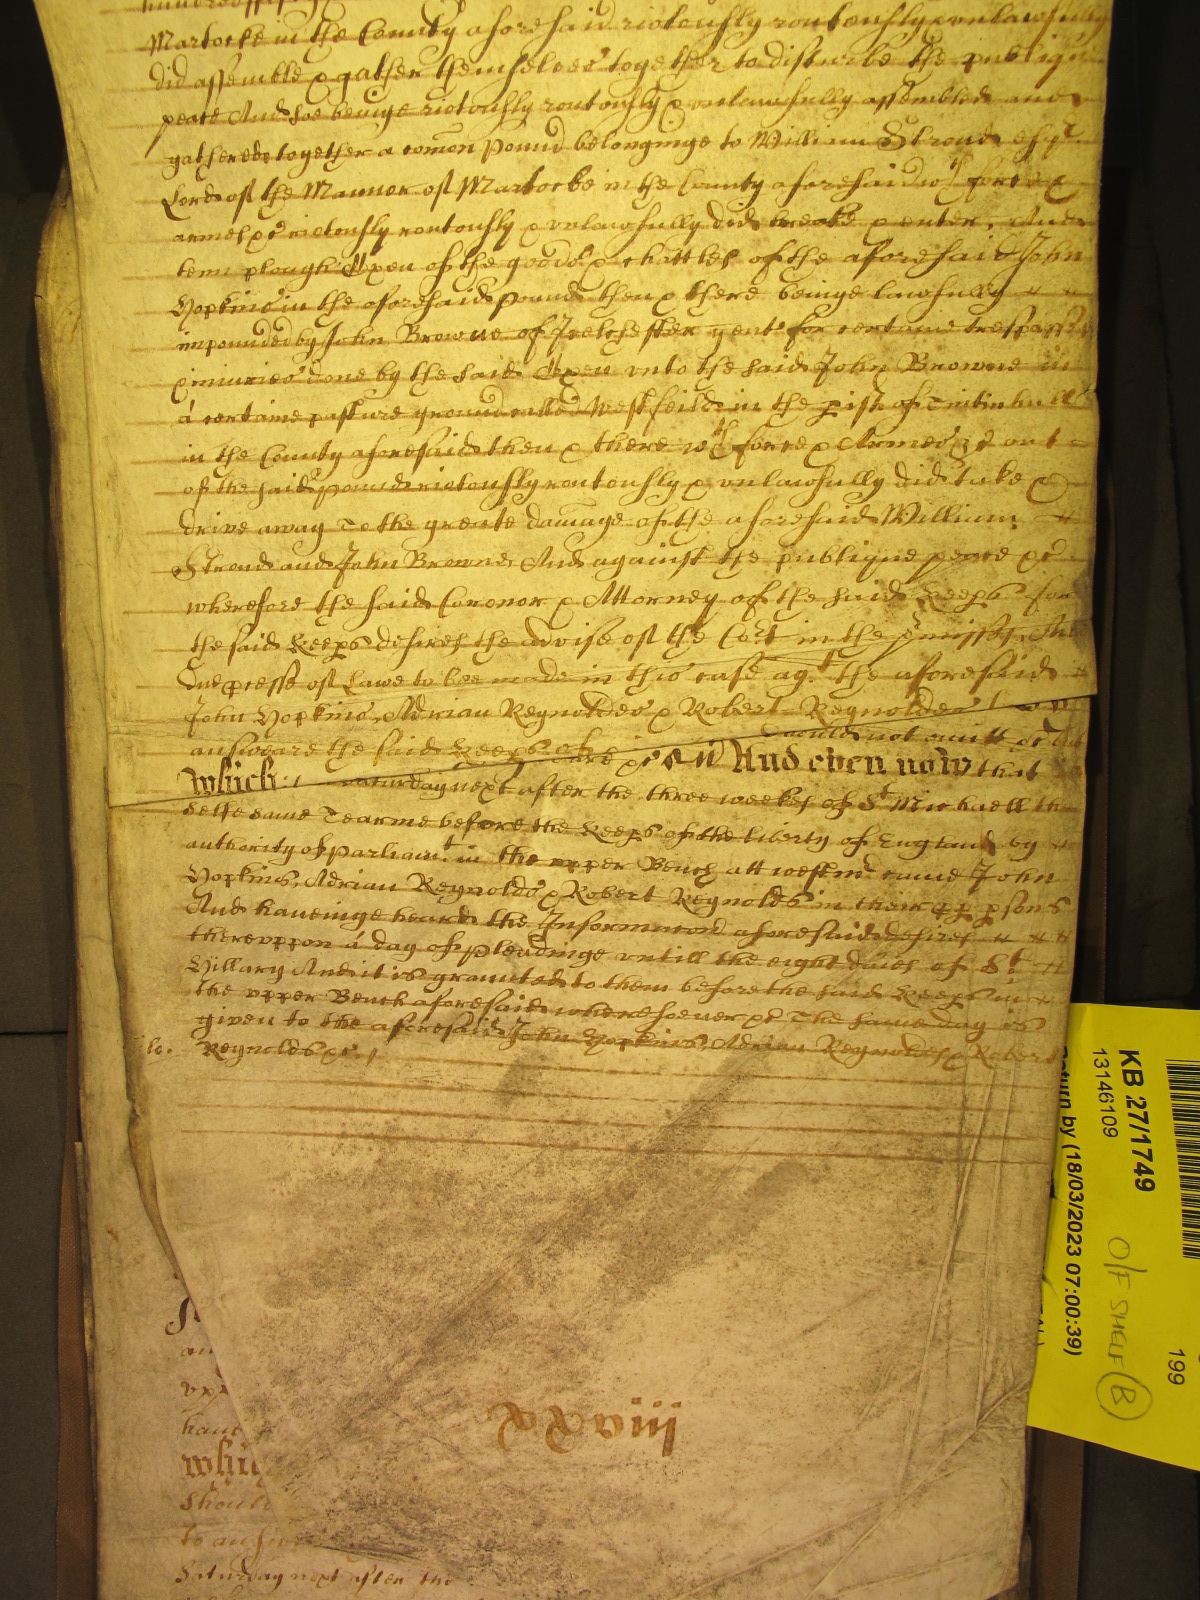 Martocke in the County aforesaid riotously routously & unlawfully
did assemble & gather themselves together to disturbe the publiqu
peace And soe beinge riotously routously & unlawfully assembled and
gathered together a comon Pound belonginge to William Stroud esqr
Lord of the Mannor of Martocke in the County aforesaid wth force &
armes &c riotously routously & unlawfully did breake & enter, And
tenn plough Oxen of the goods & chattles of the aforesaid John
Hopkins in the aforesaid pound then & there beinge lawfully
impounded by John Browne of Ivelchester gent for certaine trespasses
& iniuries done by the said Oxen unto the said John Browne in
a certaine pasture ground called Westfeild in the pish of Tintinhull
in the County aforesaid then & there wth force & Armes &c out
of the said pound riotously routously & unlawfully did take &
drive away To the greate damage of the aforesaid William
Stroud and John Browne And against the publique peace &c
wherefore the said Coronor & Attorney of the said Keeps for
the said Keeps desires the advise of the Cort in the pmisses, And
due pcesse of Lawe to bee made in this case agt the aforesaid
John Hopkins, Adrian Reynoldes & Robert Reynoldes to
answeare the said Keeps
should not omitt &c
which: And even now that
Saturday next after the three weekes of St Michaell the
selfe same Tearme before the Keeps of the liberty of England by
authority of Parliamt in the upper Bench att westmr came John
Hopkins, Adrian Reynolds & Robert Reynolds in their pp psons
And haveinge heard the Informacon aforesaid desires
thereuppon a day of pleadinge untill the eight daies of St
Hillary And it is graunted to them before the said Keeps in
the upper Bench aforesaid wheresoever &c The same day is
given to the aforesaid John Hopkins, Adrian Reynoldes & Robert
Reynolds &c.
KB 27/1749
13146109
Return by (18/03/2023 07:00:39)
O/F SHELF B
199
upp
haue
whic
should
to answ
Saturday next after the